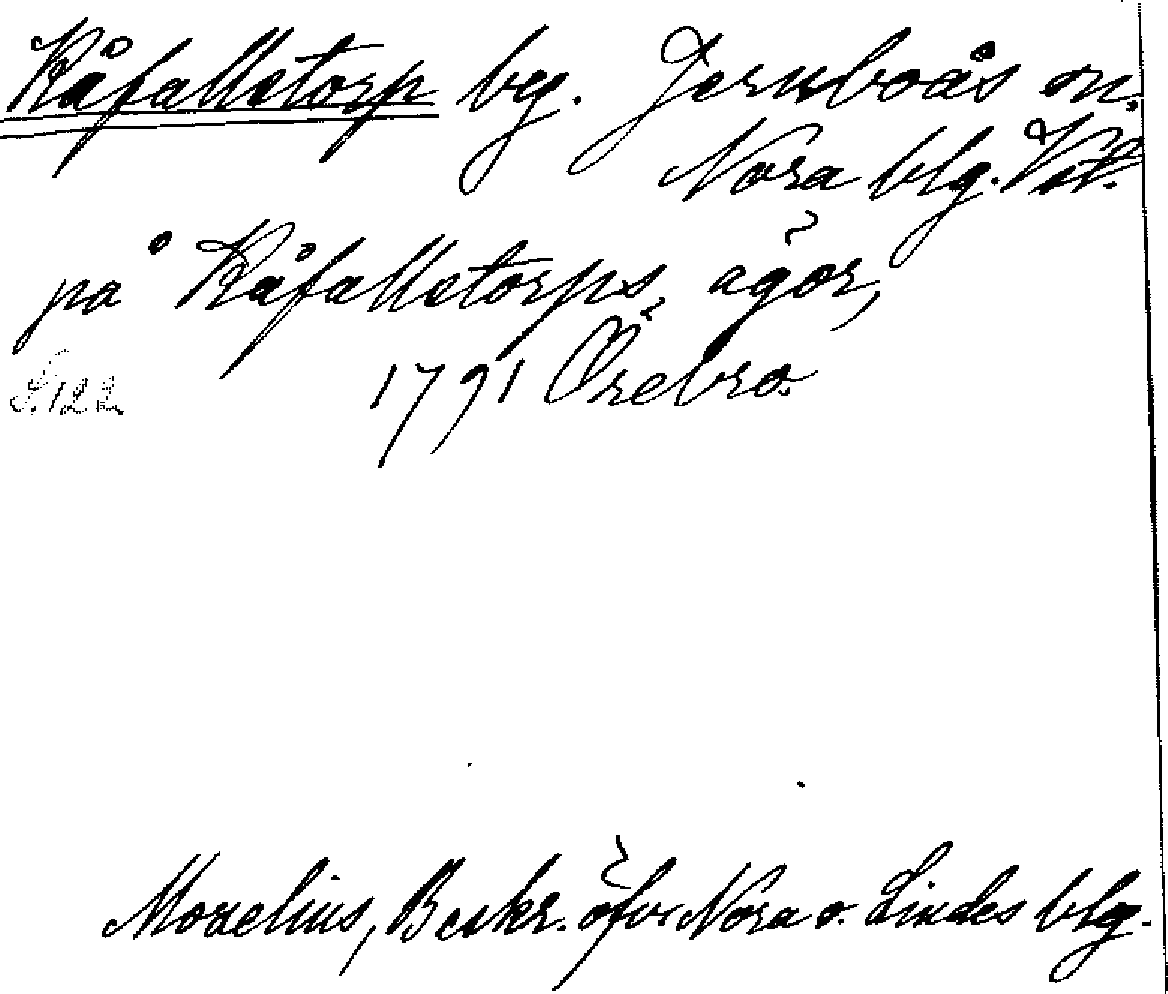 Råfallstorp by. Jernboås sn.
Nora blg. Vstm.
på Råfallstorps ägor,
S. 122 1791 Örebro.
Morelius, Beskr. öfver Nora o. Lindes blg.